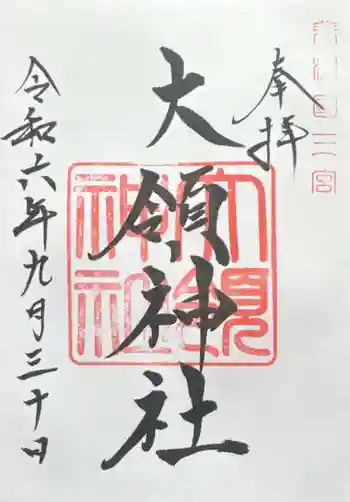 奉拝
大領神社
大領神社
令和六年九月三十日